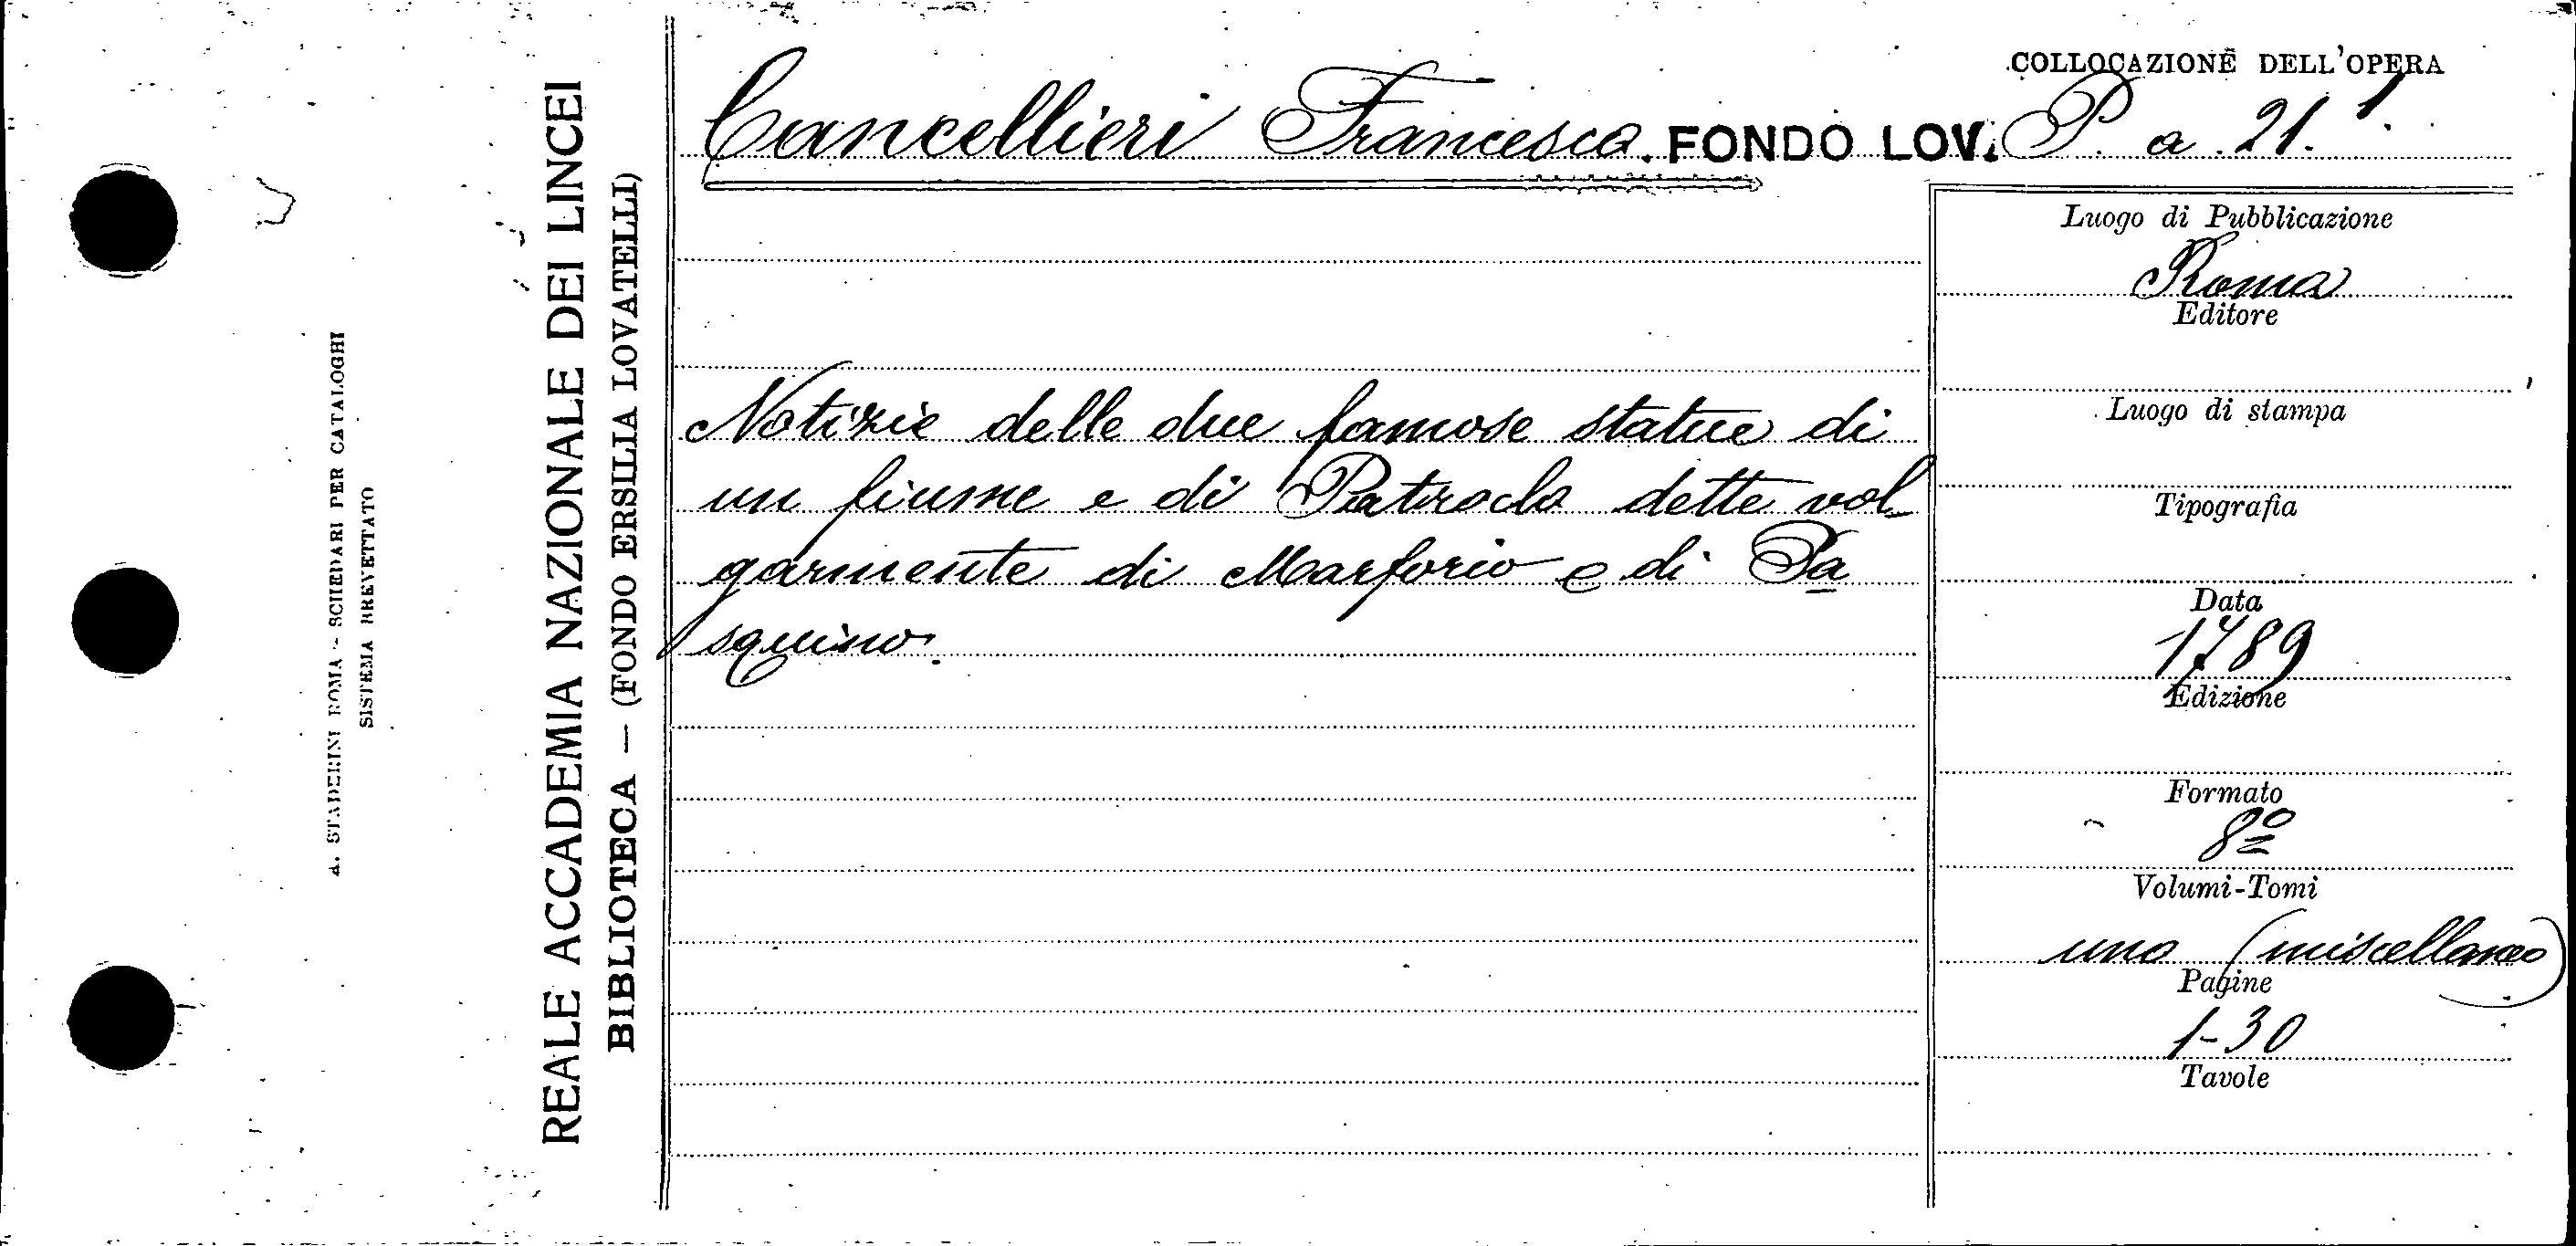 A. STADERINI ROMA - SCHEDARI PER CATALOGHI
SISTEMA BREVETTATO
REALE ACCADEMIA NAZIONALE DEI LINCEI
BIBLIOTECA — (FONDO ERSILIA LOVATELLI)
Cancellieri Francesco. FONDO LOV.
COLLOCAZIONE DELL'OPERA
P. a. 21. 1
Notizie delle due famose statue di
un fiume e di Patroclo dette vol-
garmente di Marforio e di Pa
squino.
Luogo di Pubblicazione
Roma
Editore
Luogo di stampa
Tipografia
Data
1789
Edizione
Formato
8º
Volumi-Tomi
uno (miscellaneo)
Pagine
1-30
Tavole